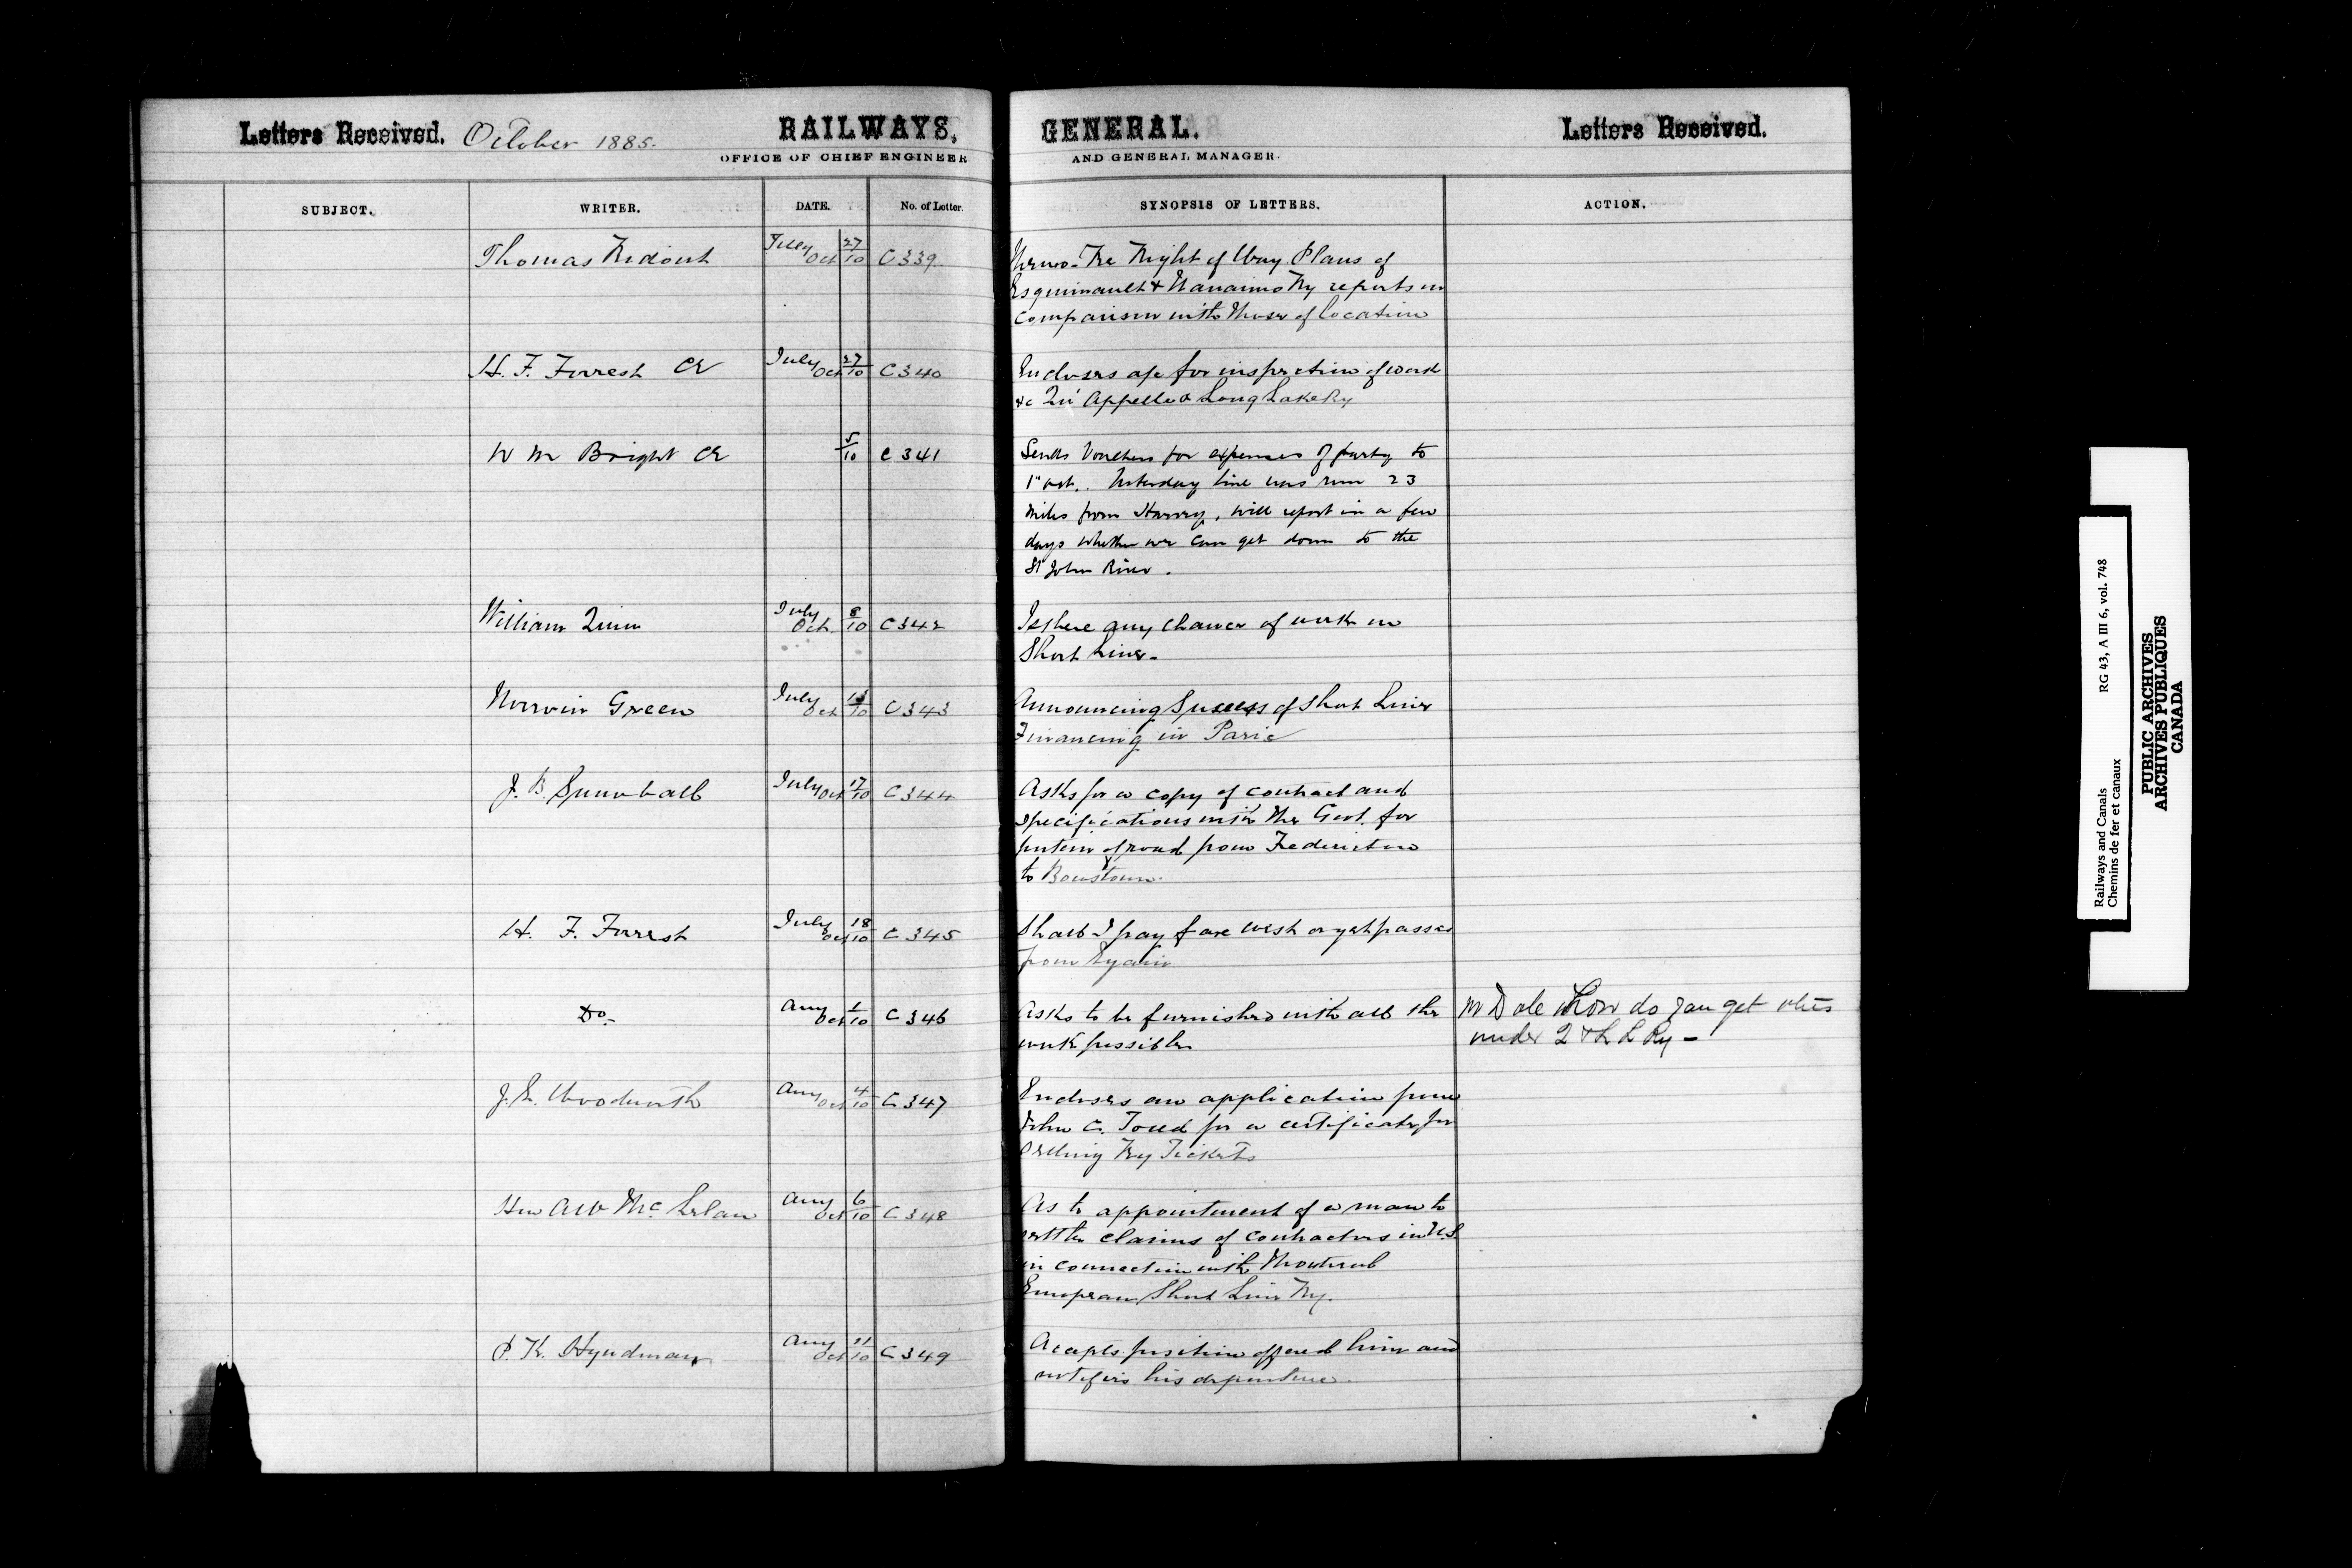 Letters Received. October 1885.
RAILWAYS, GENERAL.
Letters Received.
OFFICE OF CHIEF ENGINEER AND GENERAL MANAGER.
SUBJECT. WRITER. DATE. No. of Letter. SYNOPSIS OF LETTERS. ACTION.
Thomas Ridout July 27 Oct 10 C339 Memo - Re Right of Way Plans of
Esquimault & Nanaimo Ry reports on
comparison with those of location
H. F. Forrest CE July 27 Oct 10 C340 Encloses a/c for inspection of work
&c Qu'Appelle & Long Lake Ry
W M Bright CE 5/10 C341 Sends Vouchers for expenses of party to
1st Oct. Yesterday line was run 23
miles from Harvey, will report in a few
days whether we can get down to the
St John River.
William Quinn July 8 Oct 10 C342 Is there any chance of work on
Short Line-
Norvin Green July 13 Oct 10 C343 Announcing Success of Short Line
Financing in Paris
J. B. Snowball July 17 Oct 10 C344 Asks for a copy of contract and
specifications with the Govt. for
portion of road from Fredericton
to Boiestown.
H. F. Forrest July 18 Oct 10 C345 Shall I pay fare west or get passes
from
Do- Aug 1 Oct 10 C346 Asks to be furnished with all the
work possible
Mr Dale how do you get
under Q & L L Ry -
J. E. Woodworth Aug 4 Oct 10 C347 Encloses an application from
John C. Todd for a certificate for
selling Ry Tickets
Hon A W McLelan Aug 6 Oct 10 C348 As to appointment of a man to
settle claims of contractors in N.S.
in connection with Montreal
European Short Line Ry.
P. K. Hyndman Aug 11 Oct 10 C349 Accepts position offered him and
notifies his departure.
Railways and Canals RG 43, A III 6, vol. 748
Chemins de fer et canaux
PUBLIC ARCHIVES
ARCHIVES PUBLIQUES
CANADA